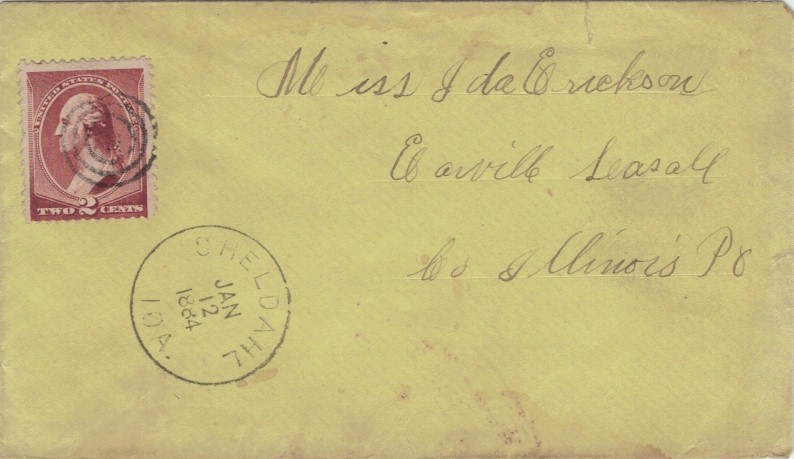 UNITED STATES POSTAGE
TWO 2 CENTS
Miss Ida Erickson
Earville Leasall
Co Illinois PO
SHELDAHL
JAN
12
1884
IOA.